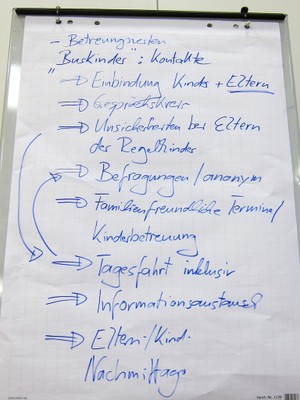 - Betreuungszeiten
"Buskinder": Kontakte
⇒ Einbindung Kinder + Eltern
⇒ Gesprächskreis
⇒ Unsicherheiten bei Eltern
der Regelkinder
⇒ Befragungen / anonym
⇒ Familienfreundliche Termine /
Kinderbetreuung
⇒ Tagesfahrt inklusiv
⇒ Informationsaustausch
⇒ Eltern-/Kind-
Nachmittage